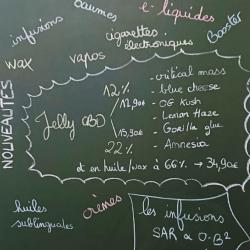 baumes
e-liquides
infusions
cigarettes électroniques
Booster
wax
vapos
NOUVEAUTÉS
Jelly CBD
12%
12,90€
15,90€
22%
- critical mass
- blue-cheese
- OG Kush
- Lemon Haze
- Gorilla glue
- Amnesia
et en huile/wax à 66% → 34,90€
huiles sublinguales
crèmes
les infusions
SAR